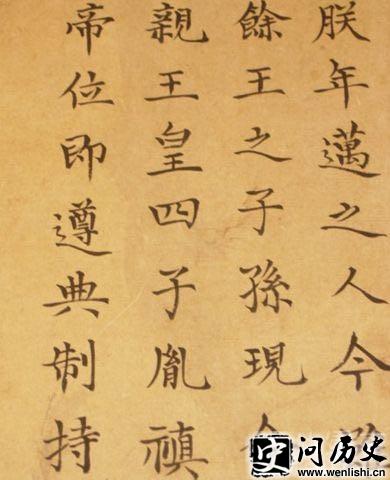 朕年邁之人今
餘王之子孫現
親王皇四子胤禛
帝位即遵典制持
史 问历史
www.wenlishi.cn